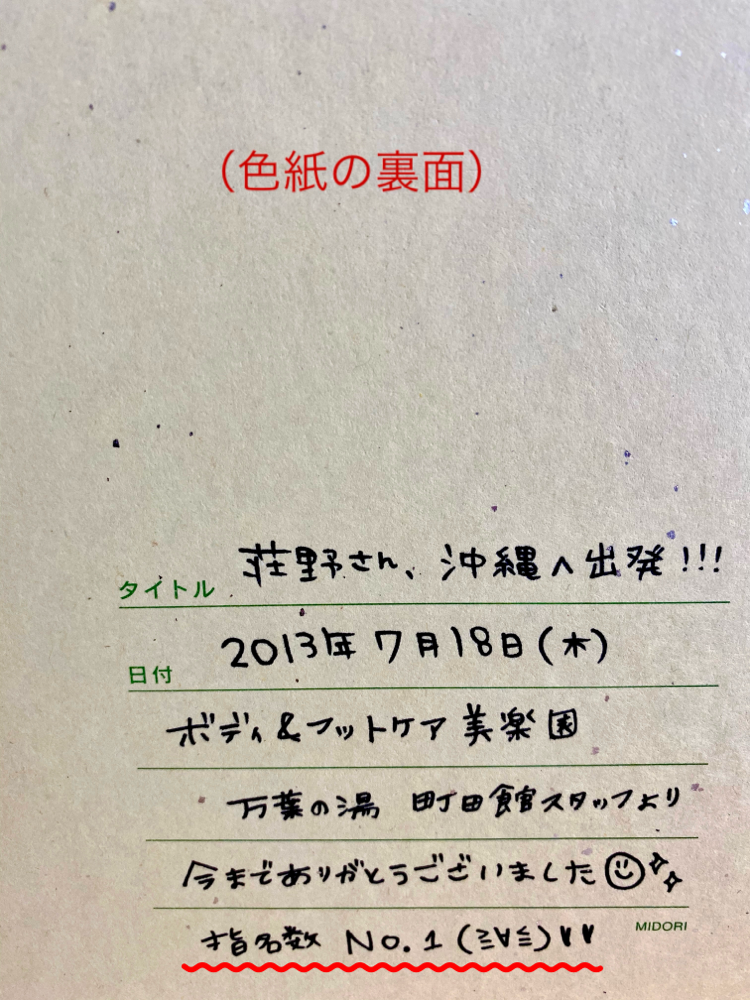 （色紙の裏面）
タイトル 荘野さん、沖縄へ出発!!!
日付 2013年 7月18日(木)
ボディ&フットケア 美楽園
万葉の湯 町田館スタッフより
今までありがとうございました
指名数 No.1 (≧∀≦)
MIDORI